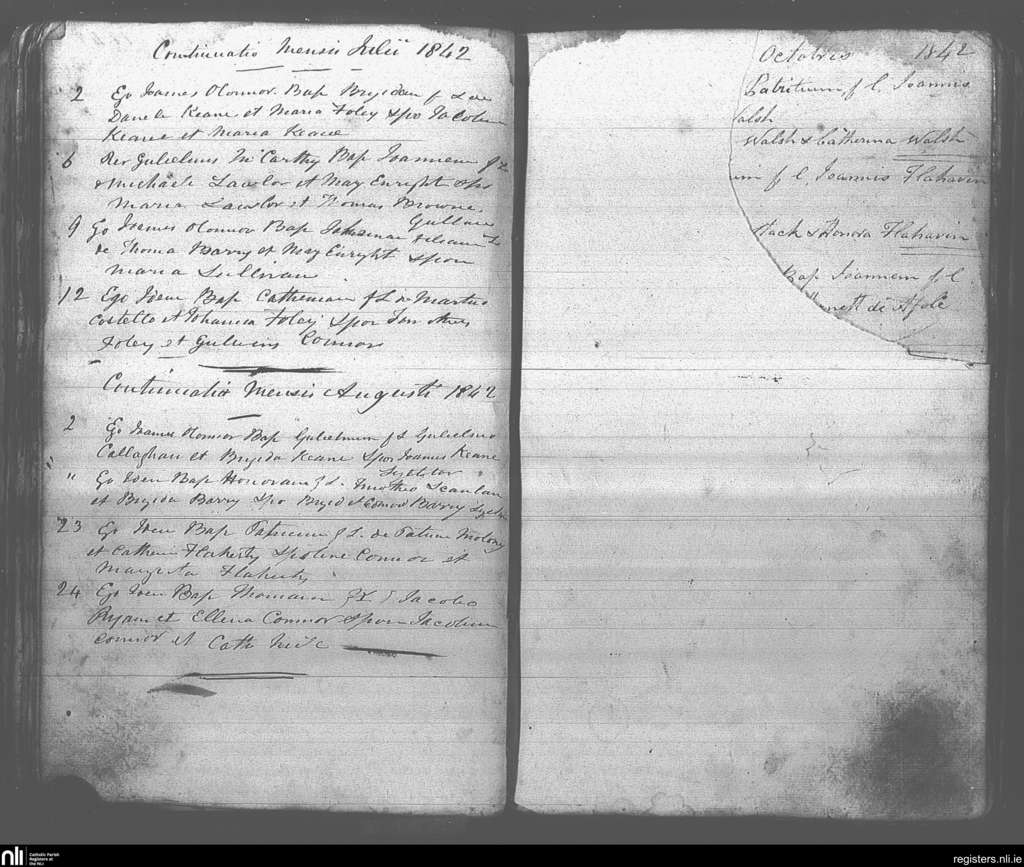 Continuatio Mensis Julii 1842
2 Ego Joannes OConnor Bap Brigidam f L de
Daniele Keane et Maria Foley Spo Jacobum
Keane et Maria Keane
6 Rev Gulielmus McCarthy Bap Joannem f L
Michaele Lawlor et May Enright Spo
Maria Lawlor et Thomas Browne
9 Ego Joannes OConnor Bap
de Thoma Barry et May Enright Spon
Maria Sullivan
12 Ego Idem Bap Catherinam f L de Martino
Costello et Johanna Foley Spon
Foley et Connors
Continuatio Mensis Augusti 1842
2 Ego Joannes OConnor Bap Gulielmum f L Gulielmo
Callaghan et Brigida Keane Spon Joannes Keane
" Ego Idem Bap Honoram f L Timotheo Scanlan
et Brigida Barry Spo Brigid et Connor Barry
23 Ego Idem Bap Patricium f L de Patricio Molony
et Flaherty Connor et
Margrita Flaherty
24 Ego Idem Bap Thomam Jacobo
Ryan et Ellena Connor Spon Jacobum
Connor et Cath
Octobris 1842
Patritium f l Joannis
alsh
Walsh & Catherina Walsh
um f l Joannis Flahavin
Stack & Honora Flahavin
Bap Joannem f l
nett de
nli Catholic Parish
Registers at
the NLI
registers.nli.ie